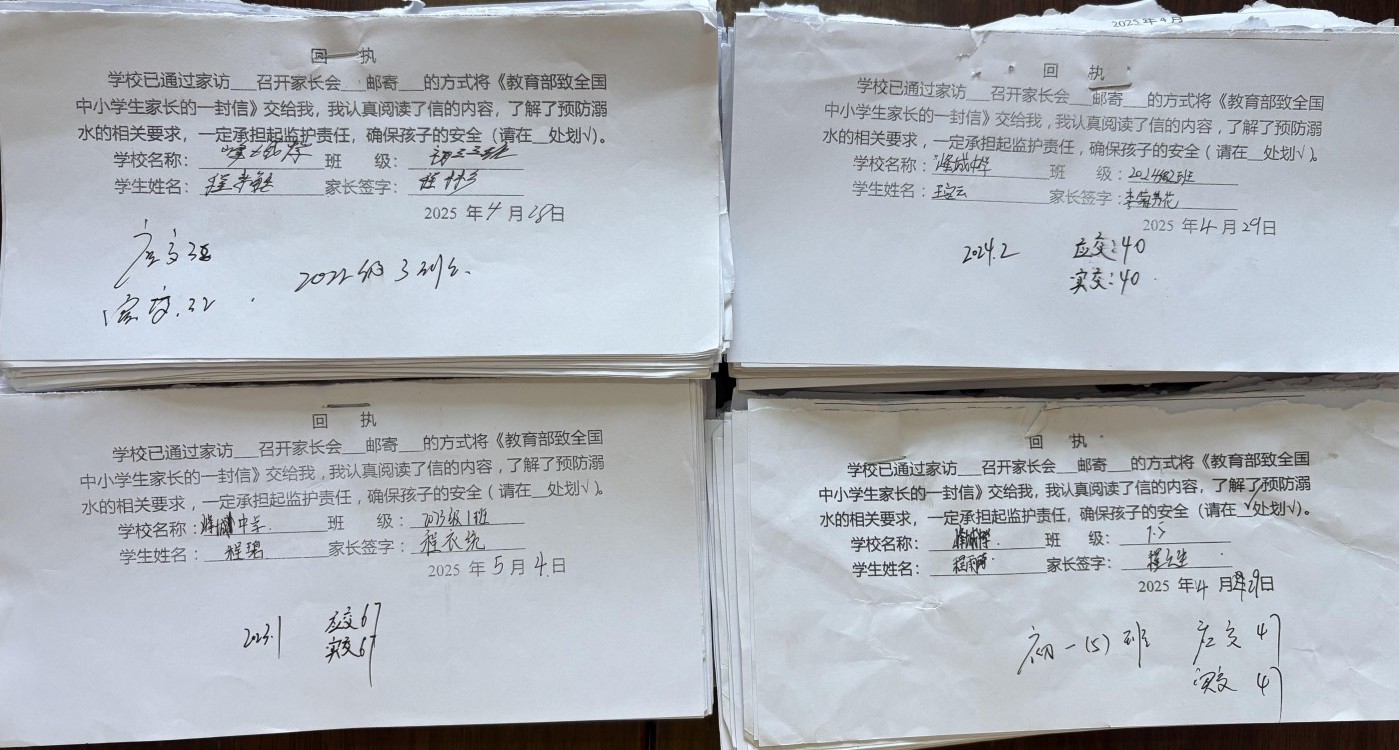 回 执
学校已通过家访___召开家长会___邮寄___的方式将《教育部致全国
中小学生家长的一封信》交给我，我认真阅读了信的内容，了解了预防溺
水的相关要求，一定承担起监护责任，确保孩子的安全（请在__处划√）。
学校名称： 班 级：初三三班
学生姓名：程 家长签字：程
2025 年 4 月 28 日
应交
实交.32
2022级3班
2025年4月
回 执
学校已通过家访___召开家长会___邮寄___的方式将《教育部致全国
中小学生家长的一封信》交给我，我认真阅读了信的内容，了解了预防溺
水的相关要求，一定承担起监护责任，确保孩子的安全（请在__处划√）。
学校名称： 班 级：2024级2班
学生姓名：王 家长签字：李
2025 年 4 月 29 日
2024.2 应交：40
实交：40
回 执
学校已通过家访___召开家长会___邮寄___的方式将《教育部致全国
中小学生家长的一封信》交给我，我认真阅读了信的内容，了解了预防溺
水的相关要求，一定承担起监护责任，确保孩子的安全（请在__处划√）。
学校名称：中学 班 级：级1班
学生姓名：程 家长签字：程
2025 年 5 月 4 日
2023.1 应交67
实交67
回 执
学校已通过家访___召开家长会___邮寄___的方式将《教育部致全国
中小学生家长的一封信》交给我，我认真阅读了信的内容，了解了预防溺
水的相关要求，一定承担起监护责任，确保孩子的安全（请在__√处划√）。
学校名称： 班 级：1.5
学生姓名：程 家长签字：程
2025 年 4 月 29 日
初一(5)班 应交 47
实交 47